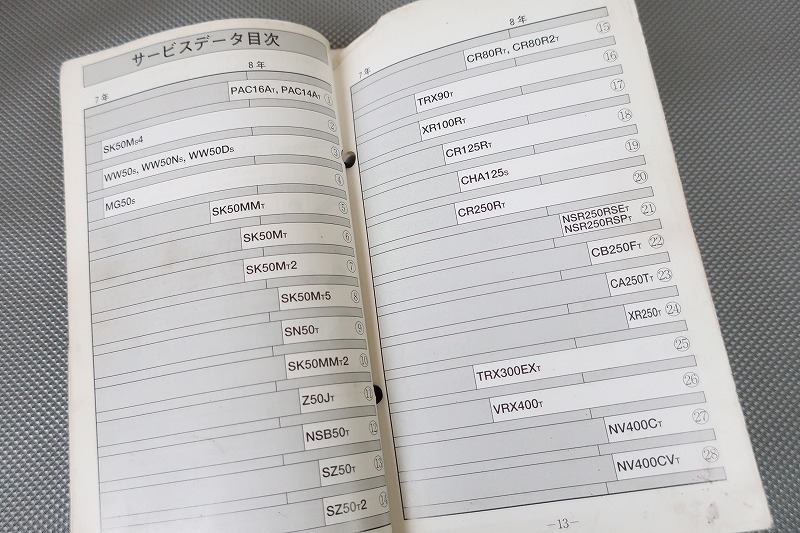 サービスデータ目次
7年
8年
PAC16AT, PAC14AT ①
②
SK50MS4
③
WW50S, WW50NS, WW50DS
④
MG50S
SK50MMT ⑤
SK50MT ⑥
SK50MT2 ⑦
SK50MT5 ⑧
SN50T ⑨
SK50MMT2 ⑩
Z50JT ⑪
NSB50T ⑫
SZ50T ⑬
SZ50T2 ⑭
7年
8年
CR80RT, CR80R2T ⑮
⑯
TRX90T
⑰
XR100RT
⑱
CR125RT
⑲
CHA125S
⑳
CR250RT
NSR250RSET ㉑
NSR250RSPT
CB250FT ㉒
CA250TT ㉓
XR250T ㉔
㉕
TRX300EXT
㉖
VRX400T
NV400CT ㉗
NV400CVT ㉘
—13—